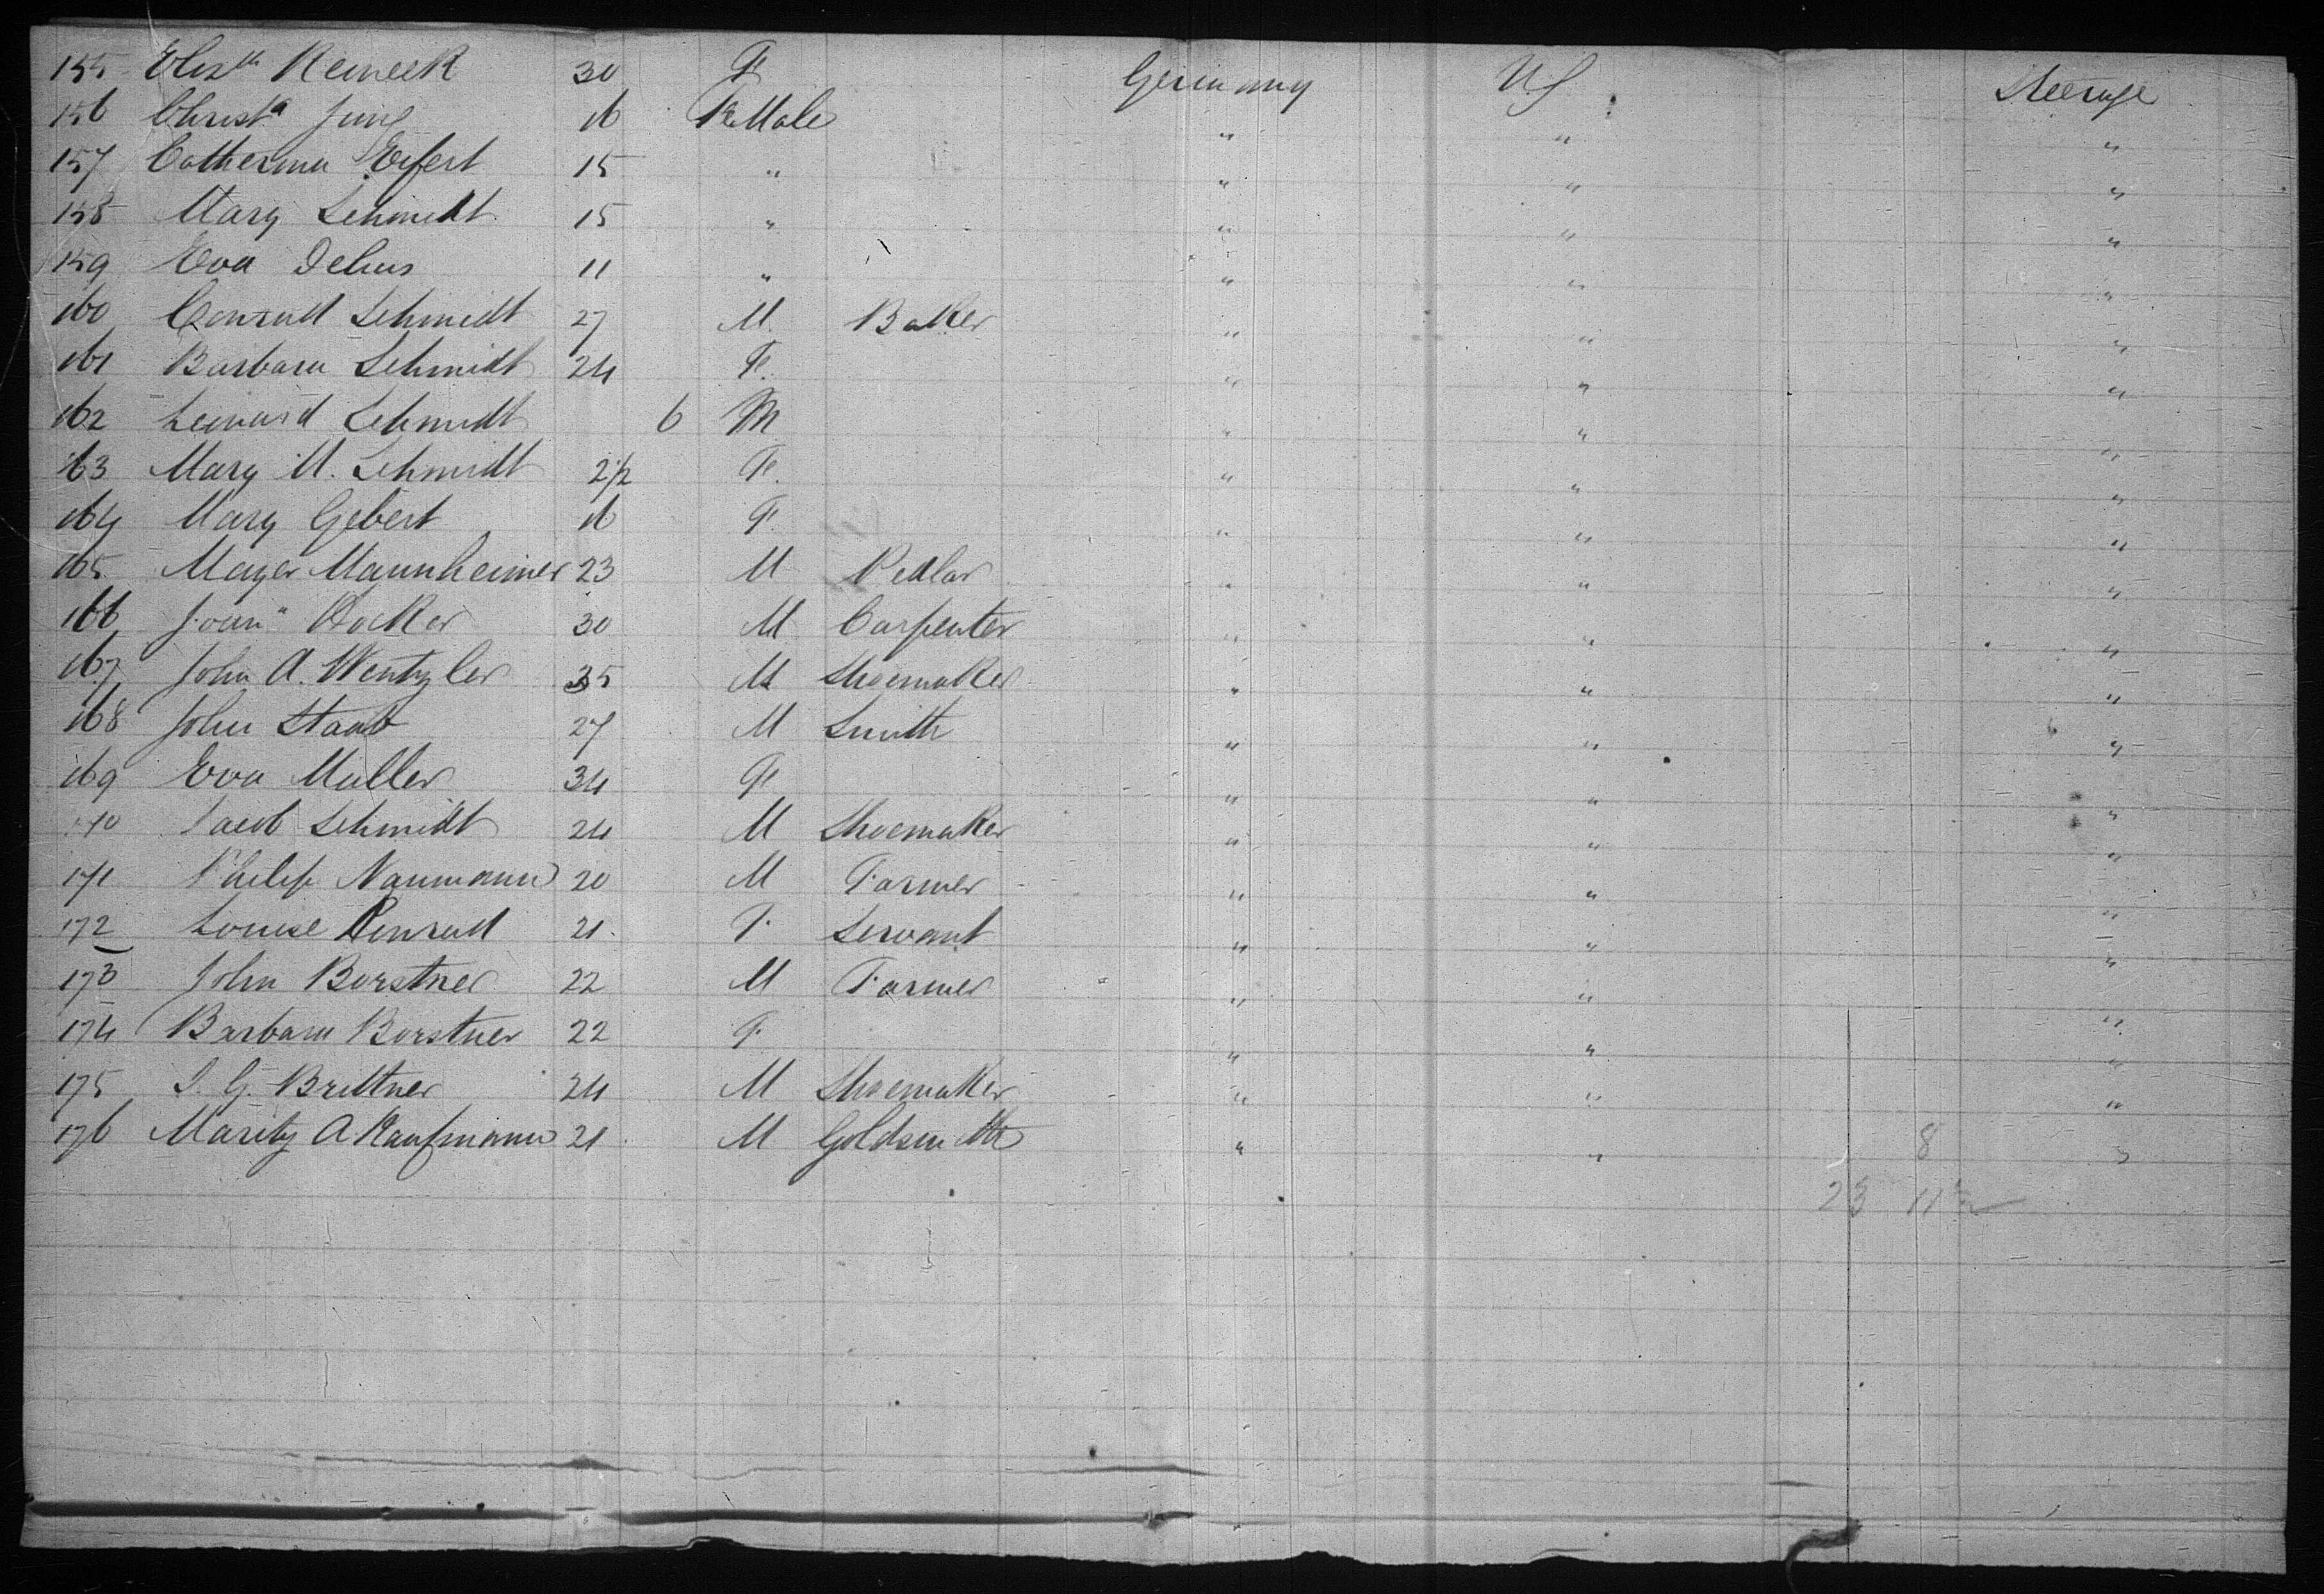 155 Elisth Reineck 30 F Germany U.S Steerage
156 Christa Jung 16 FeMale " " "
157 Catherina Eifert 15 " " " "
158 Mary Schmidt 15 " " " "
159 Eva Delius 11 " " " "
160 Conrad Schmidt 27 M. Baker " " "
161 Barbara Schmidt 24 F. " " "
162 Leonard Schmidt 6 M " " "
163 Mary M. Schmidt 2 1/2 F. " " "
164 Mary Gebert 16 F. " " "
165 Mayer Mannheimer 23 M Pedlar " " "
166 Hocker 30 M Carpenter " " "
167 John A. Wentzler 35 M Shoemaker " " "
168 John Staab 27 M Smith " " "
169 Eva Muller 34 F " " "
170 Jacob Schmidt 24 M Shoemaker " " "
171 Philip Naumann 20 M Farmer " " "
172 Louise Conrad 21. F. Servant " " "
173 John Borstner 22 M Farmer " " "
174 Barbara Borstner 22 F. " " "
175 J. G. Brittner 24 M Shoemaker " " "
176 Maritz A Kaufmann 21. M Goldsmith " " 8 "
23 11 1/2